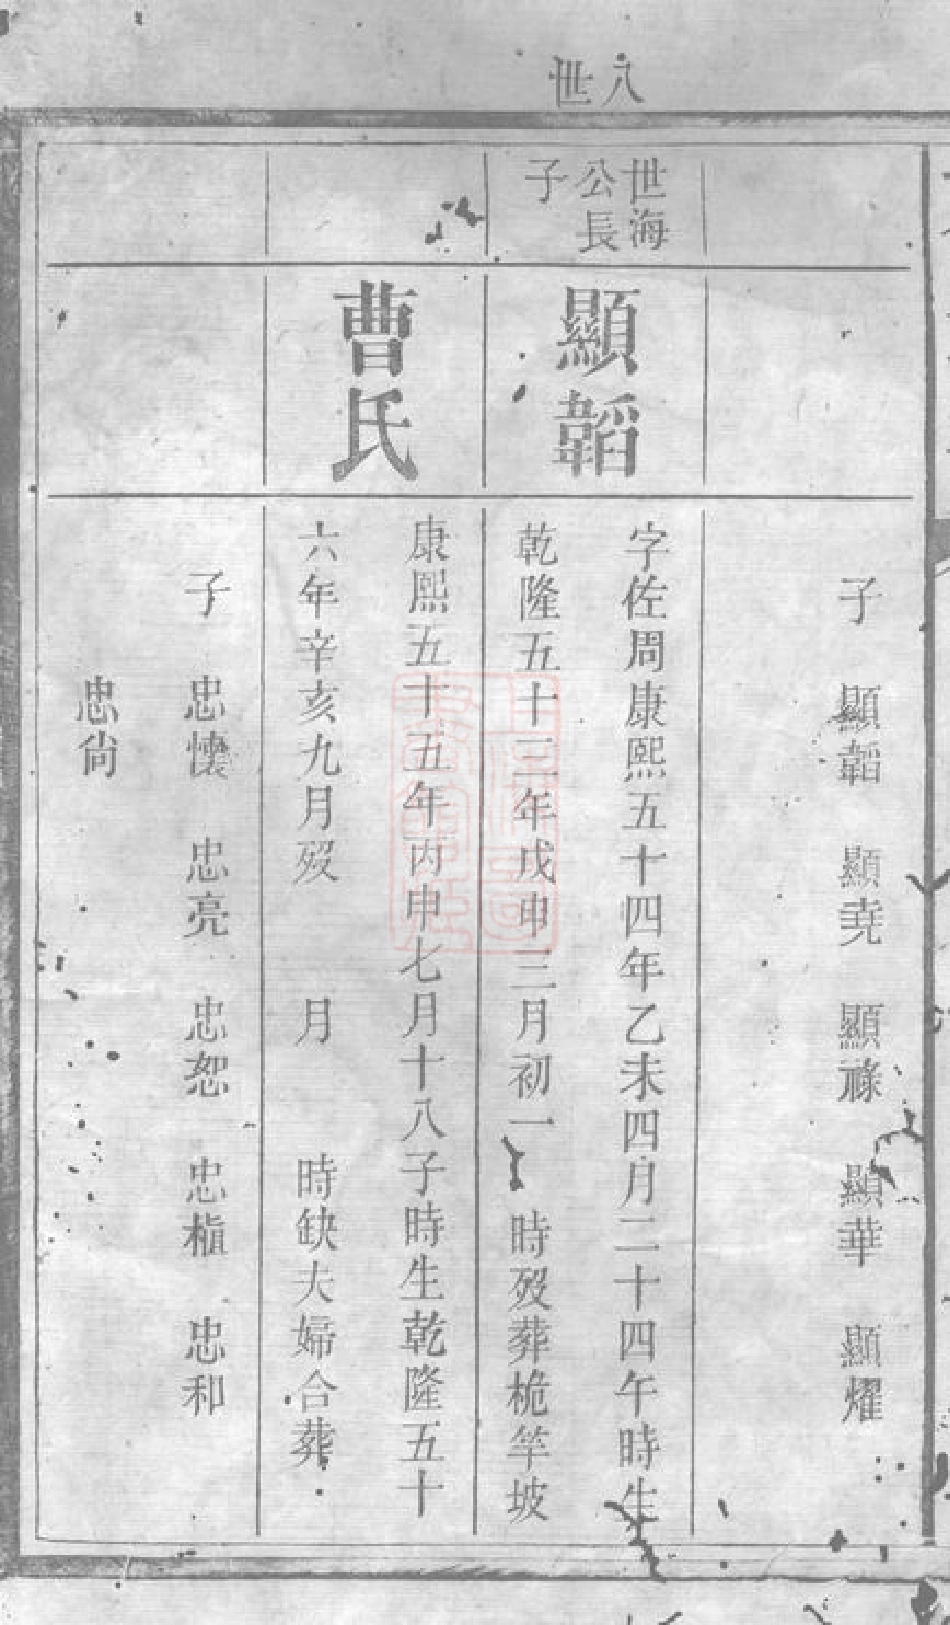 八世
子 顯韜 顯堯 顯祿 顯華 顯燿
世海
公長
子
顯韜
字佐周康熙五十四年乙未四月二十四午時生
乾隆五十三年戊申三月初一 時歿葬桅竿坡
曹氏
康熙五十五年丙申七月十八子時生乾隆五十
六年辛亥九月歿 月 時缺夫婦合葬
子 忠懷 忠亮 忠恕 忠楨 忠和
忠尚